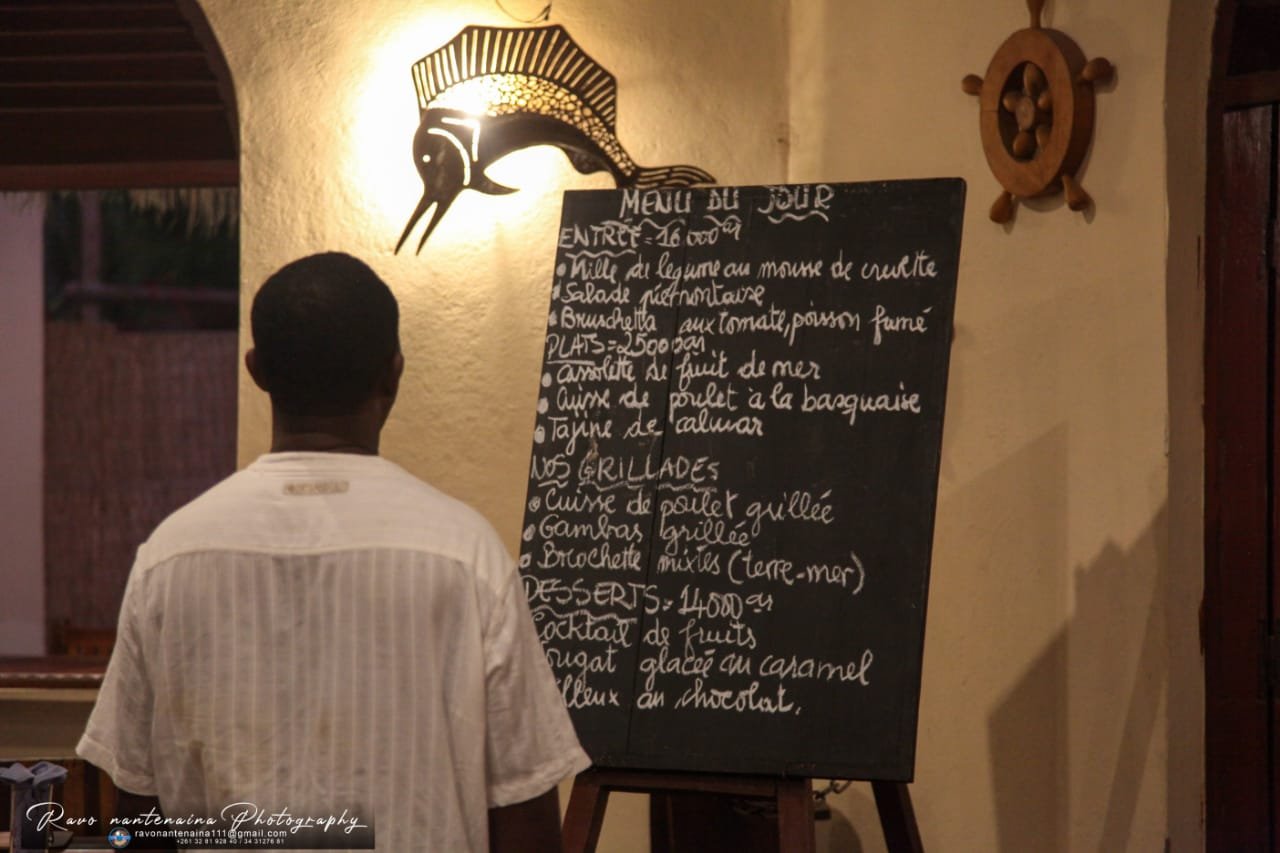 MENU DU JOUR
ENTRÉE = 16 000 ar
Mille de legume au mousse de crevette
Salade piemontaise
Bruschetta aux tomate, poisson fumé
PLATS = 25000 ar
Cassolette de fruit de mer
Cuisse de poulet à la basquaise
Tajine de calmar
NOS GRILLADES
Cuisse de poulet grillée
Gambas grillée
Brochette mixtes (terre-mer)
DESSERTS = 14000 ar
Cocktail de fruits
ougat glacée au caramel
lleux au chocolat.
Ravo nantenaina Photography
ravonantenaina111@gmail.com
+261 32 81 928 40 / 34 31276 81